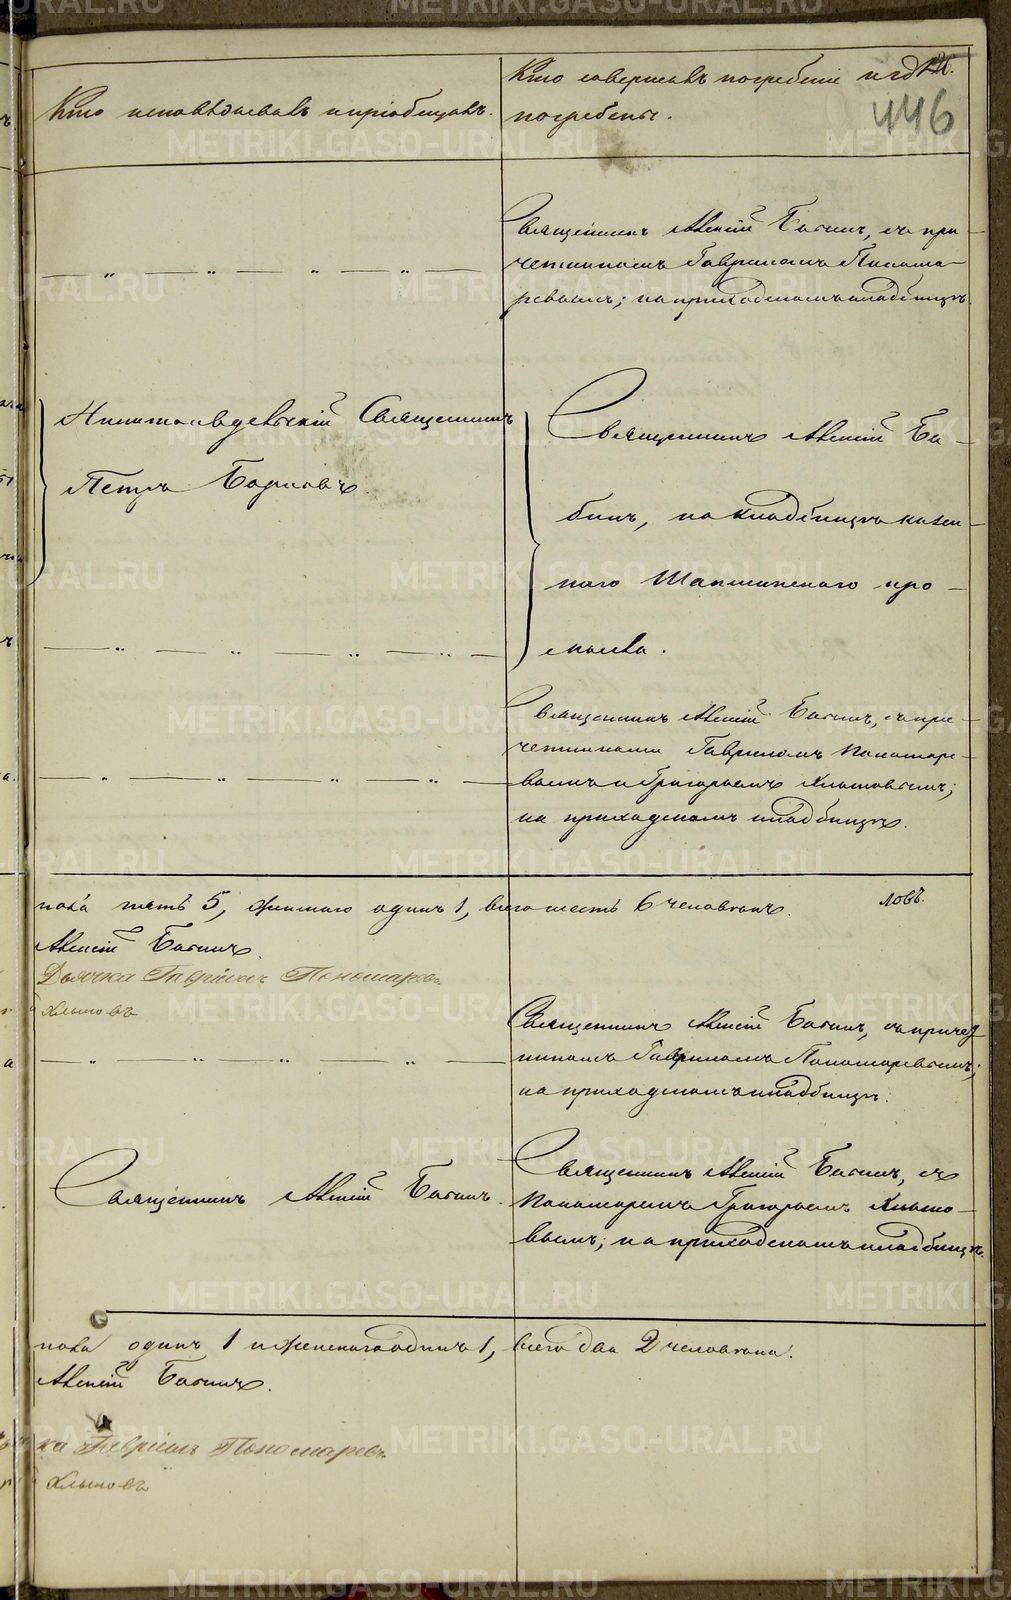 Кто исповѣдывалъ и пріобщалъ.
Кто совершалъ погребеніе и гдѣ
погребены.
446
Священникъ Алексій Бабинъ, съ при-
четникомъ Гавриломъ Понома-
ревымъ; на приходскомъ кладбищѣ.
Священникъ
Петръ
Священникъ Алексій Ба-
бинъ, на кладбищѣ казен-
наго про-
мысла.
Священникъ Алексій Бабинъ, съ при-
четниками Гавриломъ Пономаре-
вымъ и Григорьемъ Хлыновымъ;
на приходскомъ кладбищѣ.
пола пять 5, женскаго одинъ 1, всего шесть 6 человѣкъ.
ловъ.
Алексій Бабинъ.
Дьячка Гавріилъ Пономаревъ
Хлыновъ
Священникъ Алексій Бабинъ, съ причет-
никомъ Гавриломъ Пономаревымъ;
на приходскомъ кладбищѣ.
Священникъ Алексій Бабинъ.
Священникъ Алексій Бабинъ, съ
Пономаремъ Григорьемъ Хлыно-
вымъ; на приходскомъ кладбищѣ.
пола одинъ 1 и женскаго одинъ 1, всего два 2 человѣка.
Алексій Бабинъ.
ка Гавріилъ Пономаревъ
Хлыновъ
METRIKI.GASO-URAL.RU